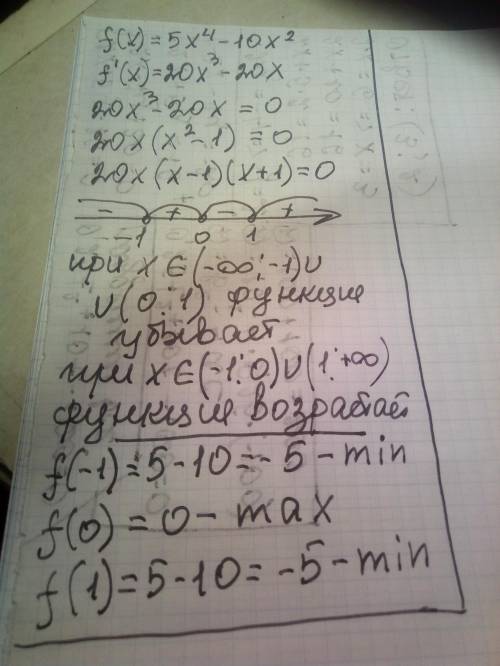 f(x) = 5x⁴ - 10x²
f'(x) = 20x³ - 20x
20x³ - 20x = 0
20x(x² - 1) = 0
20x(x-1)(x+1) = 0
- + - +
-1 0 1
при x ∈ (-∞; -1) ∪
∪ (0; 1) функция
убывает
при x ∈ (-1; 0) ∪ (1; +∞)
функция возрастает
f(-1) = 5 - 10 = -5 - min
f(0) = 0 - max
f(1) = 5 - 10 = -5 - min